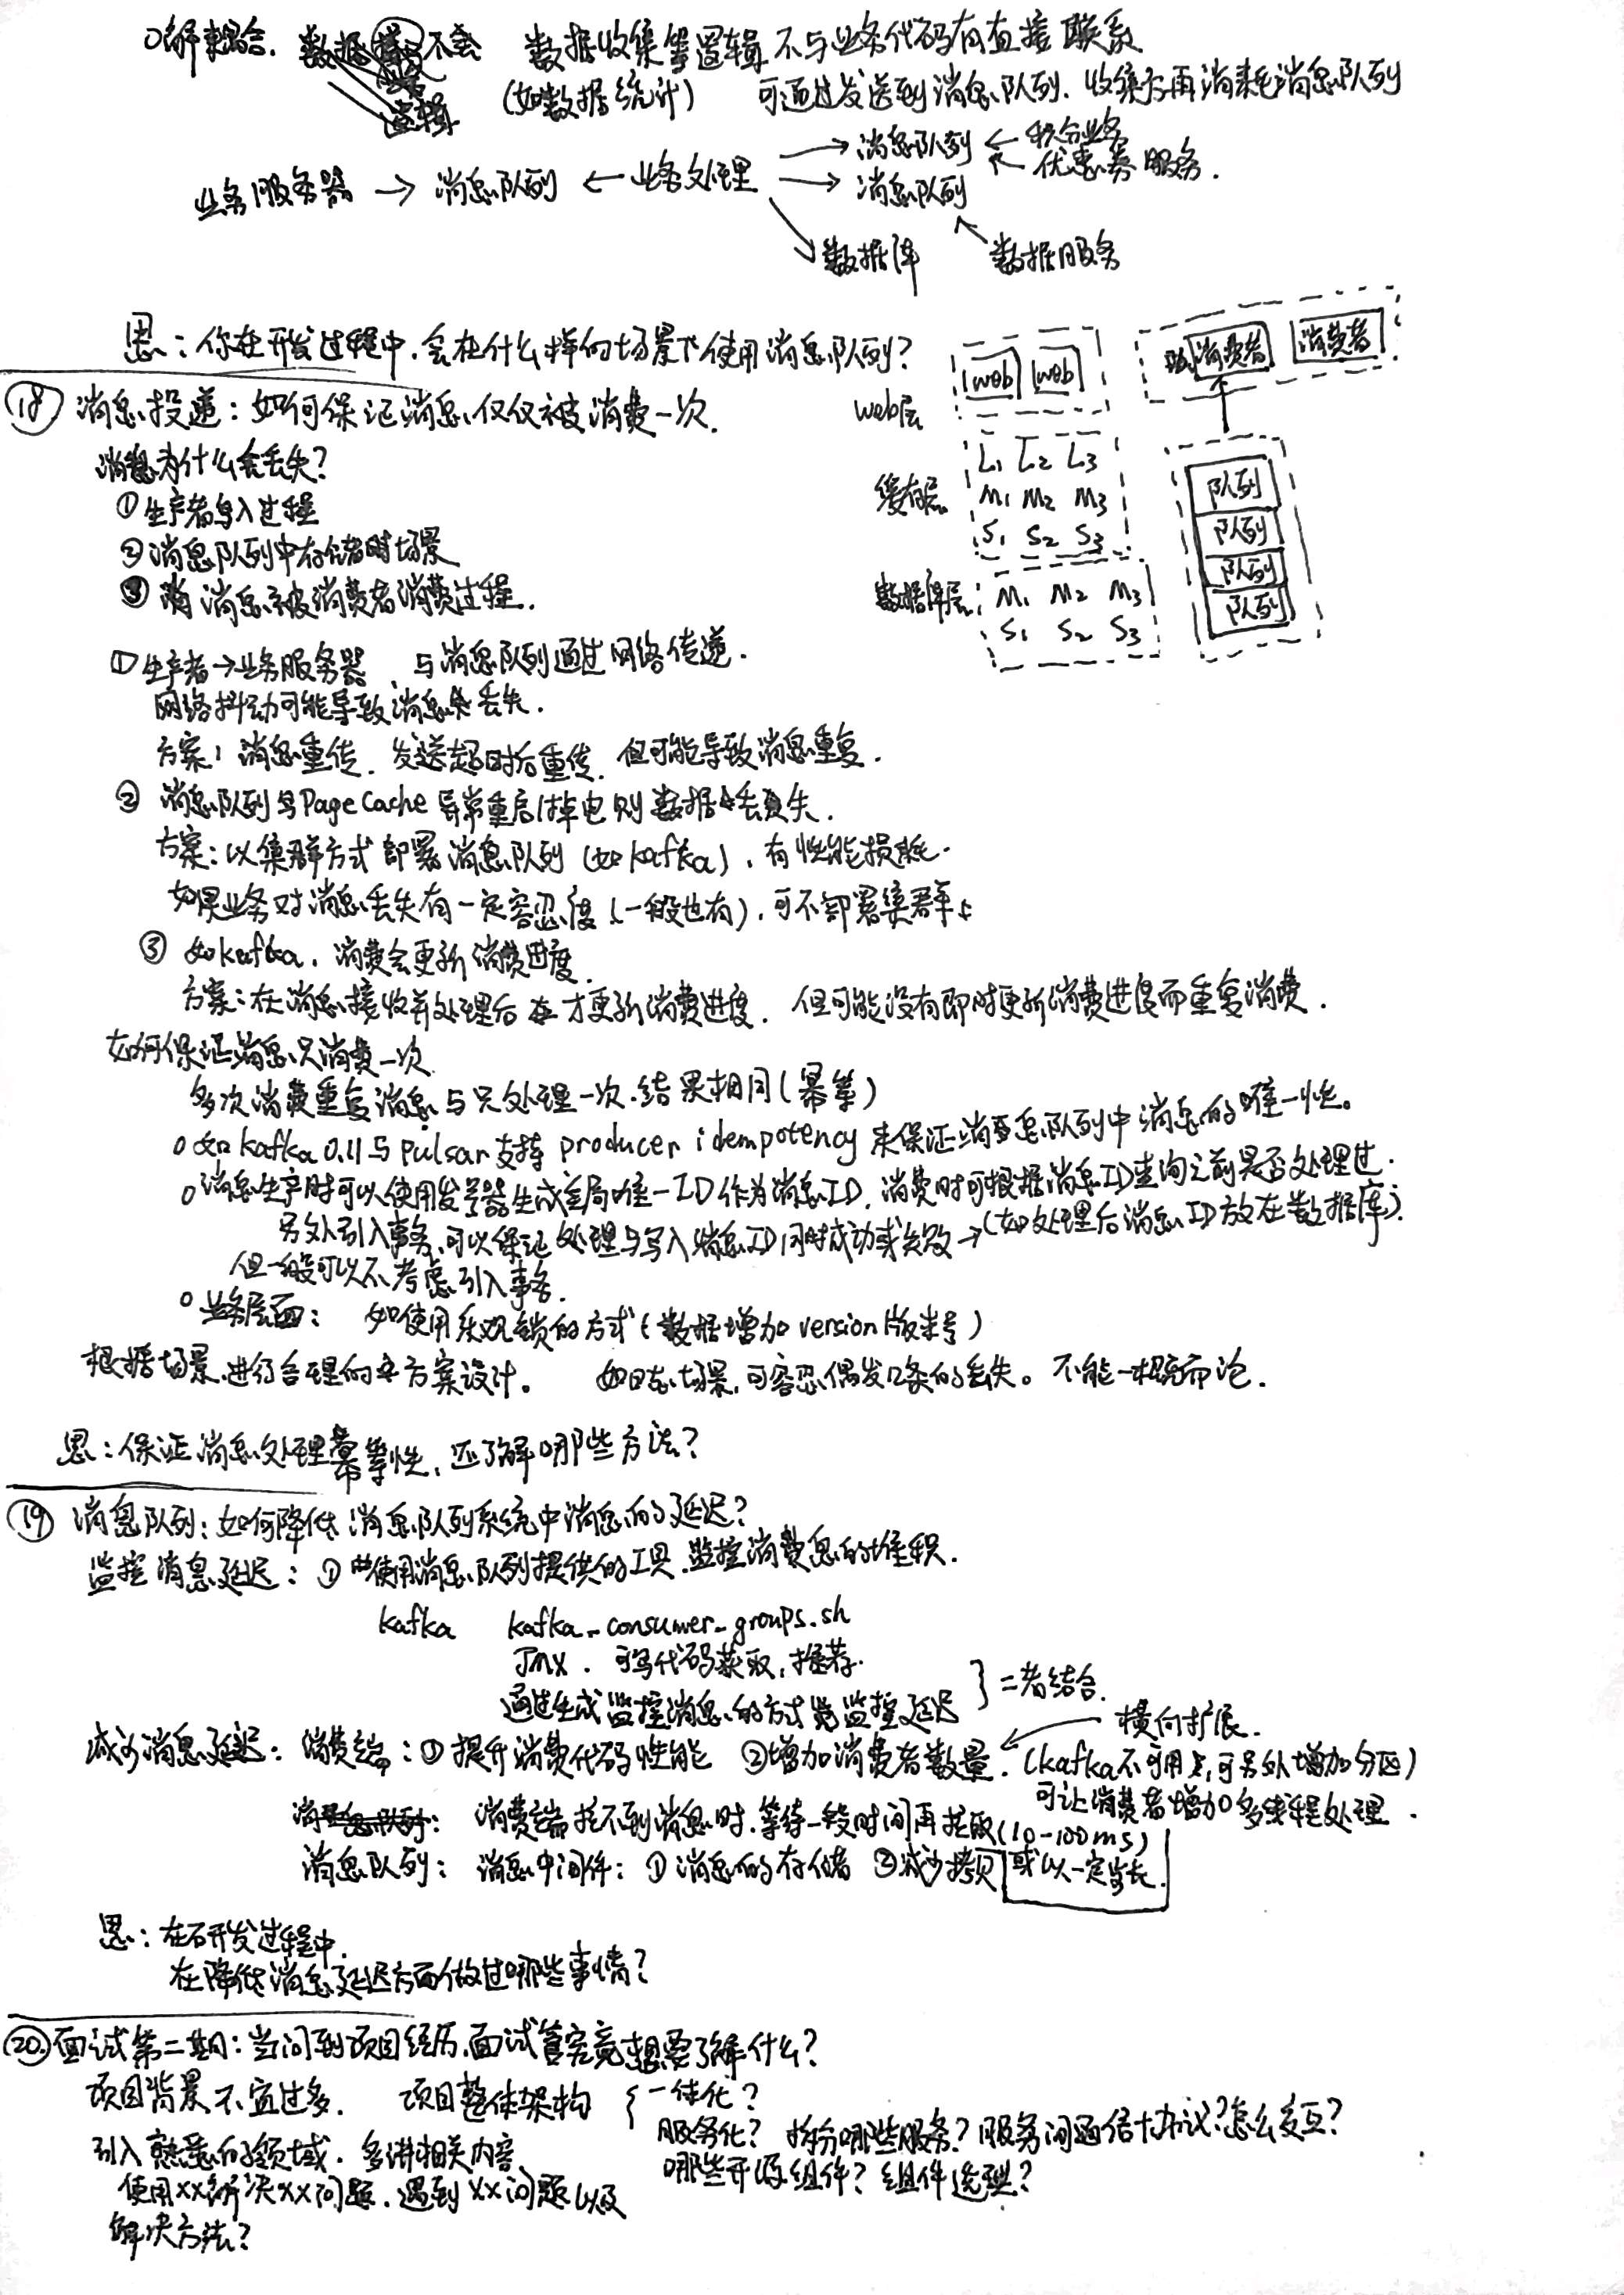 ○解耦合. 数据 不会 数据收集等逻辑不与业务代码有直接联系
逻辑 (如数据统计) 可通过发送到消息队列. 收集方再消耗消息队列
业务服务器 → 消息队列 ← 业务处理 → 消息队列 ← 积分业务
→ 消息队列 ← 优惠券服务.
数据库 数据服务
思: 你在开发过程中.会在什么样的场景下使用消息队列?
web层 web web
消费者 消费者
缓存层 L1 L2 L3
M1 M2 M3
S1 S2 S3
数据库层: M1 M2 M3
S1 S2 S3
队列
队列
队列
队列
⑱ 消息投递: 如何保证消息仅仅被消费一次.
消息为什么会丢失?
① 生产者写入过程
② 消息队列中存储时场景
③ 消息被消费者消费过程.
① 生产者→业务服务器、与消息队列通过网络传递.
网络抖动可能导致消息丢失.
方案: 消息重传. 发送超时后重传. 但可能导致消息重复.
② 消息队列写Page Cache 异常重启/掉电则数据丢失.
方案: 以集群方式部署消息队列 (如kafka), 有性能损耗.
如果业务对消息丢失有一定容忍度 (一般也有), 可不部署集群.
③ 如kafka, 消费会更新消费进度.
方案: 在消息接收并处理后才更新消费进度. 但可能没有即时更新消费进度而重复消费.
如何保证消息只消费一次
多次消费重复消息与只处理一次.结果相同(幂等)
○ 如kafka 0.11与pulsar支持 producer idempotency 来保证消息队列中消息的唯一性。
○ 消息生产时可以使用发号器生成全局唯一ID作为消息ID. 消费时可根据消息ID查询之前是否处理过.
另外引入事务,可以保证处理与写入消息ID同时成功或失败→(如处理后消息ID放在数据库).
但一般可以不考虑引入事务.
○ 业务层面: 如使用乐观锁的方式(数据增加version版本号)
根据场景.进行合理的方案设计。 如日志场景,可容忍偶发几条的丢失。不能一概而论.
思: 保证消息处理幂等性, 还了解哪些方法?
⑲ 消息队列: 如何降低消息队列系统中消息的延迟?
监控消息延迟: ① 使用消息队列提供的工具.监控消息的堆积.
kafka kafka-consumer-groups.sh
JMX. 可写代码获取,推荐.
通过生成监控消息的方式监控延迟 } 二者结合.
横向扩展.
减少消息延迟: 消费端: ① 提升消费代码性能 ② 增加消费者数量. (kafka不可用,可另外增加分区)
可让消费者增加多线程处理.
消费端拉不到消息时.等待一段时间再拉取(10-100ms)
或以一定步长.
消息队列: 消息中间件: ① 消息的存储 ② 减少拷贝
思: 在开发过程中.
在降低消息延迟方面做过哪些事情?
⑳ 面试第二期: 当问到项目经历,面试官究竟想要了解什么?
项目背景不宜过多. 项目整体架构 { 一体化?
服务化? 拆分哪些服务? 服务间通信协议? 怎么交互?
引入熟悉的领域. 多讲相关内容.
哪些开源组件? 组件选型?
使用XX解决XX问题. 遇到XX问题以及
解决方法?